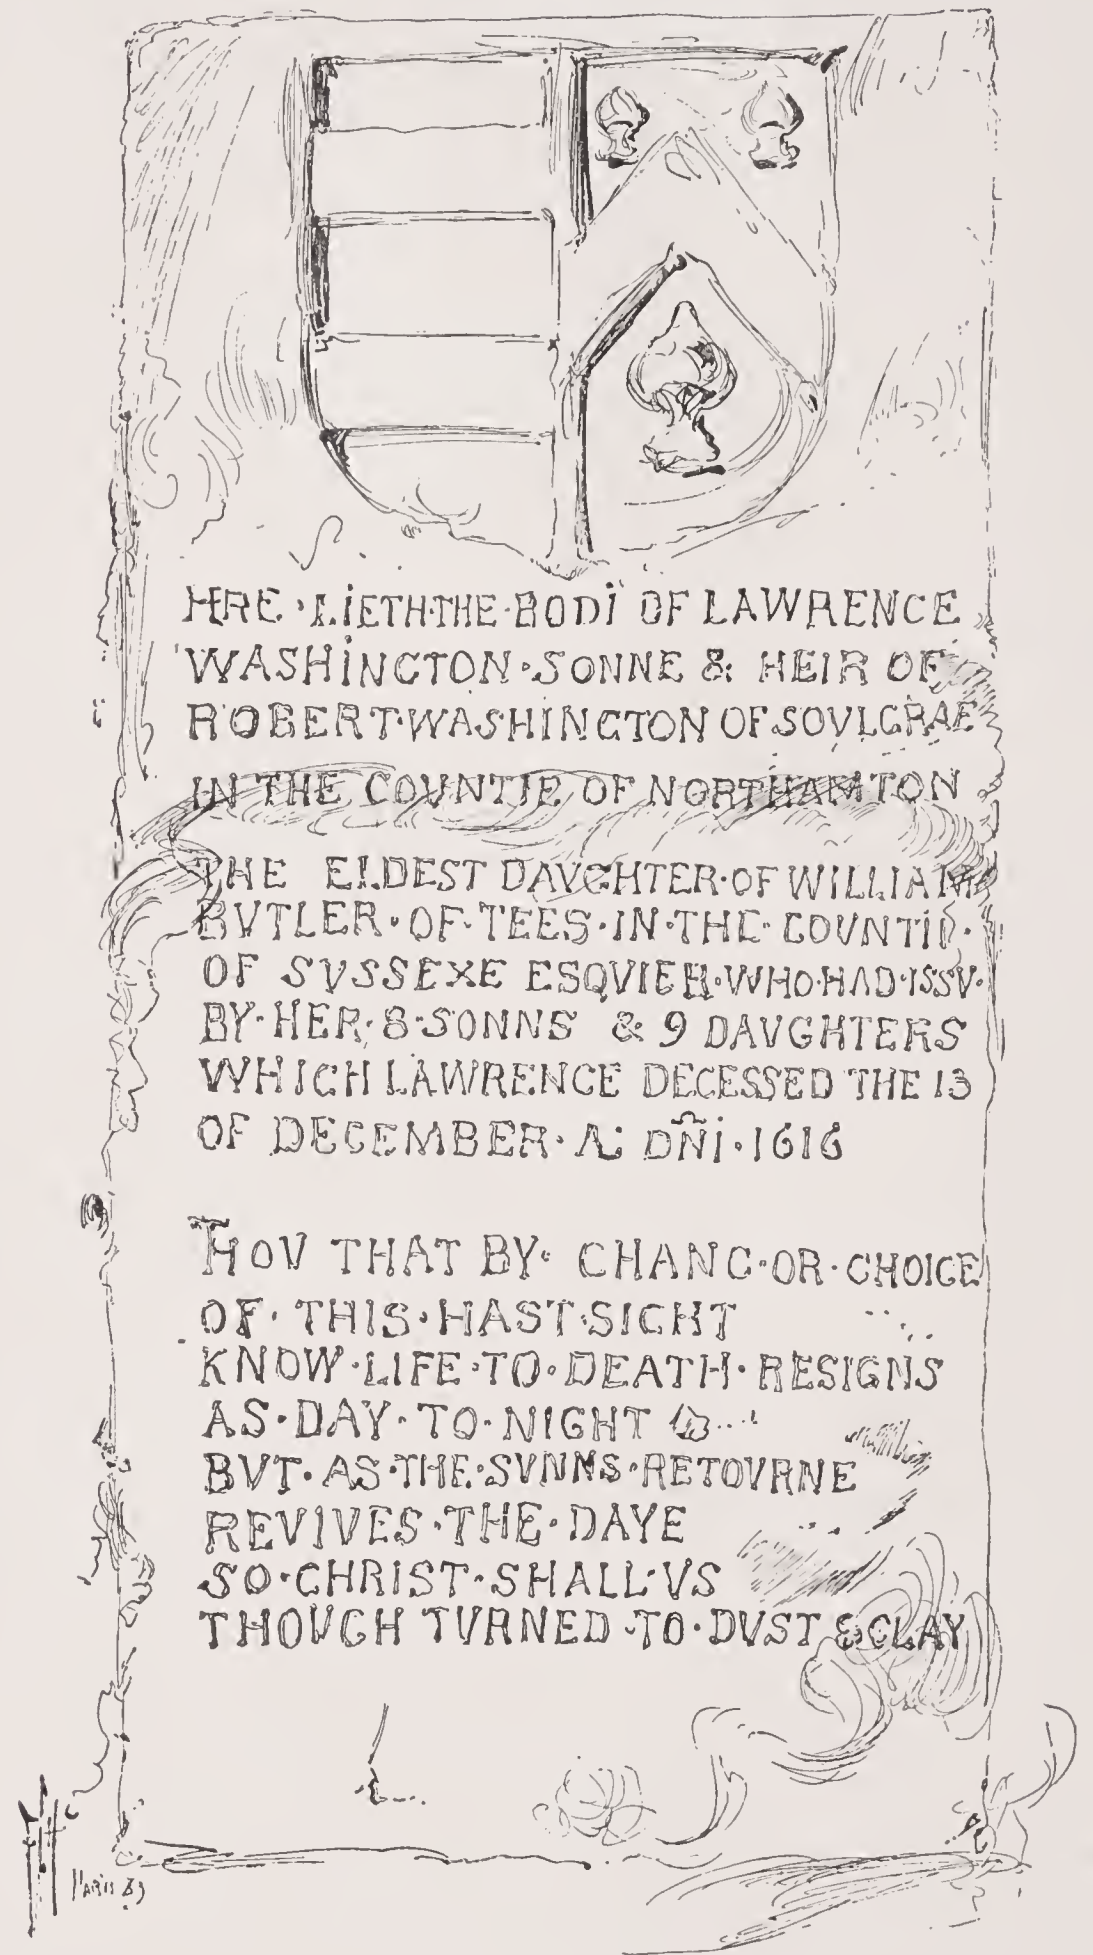 HRE · LIETH·THE·BODI OF LAWRENCE
WASHINGTON · SONNE & HEIR OF
ROBERT·WASHINGTON OF SOVLGRAE
IN THE COVNTIE OF NORTHAMTON
THE ELDEST DAVGHTER·OF WILLIAM
BVTLER · OF·TEES · IN·THE· COVNTIE·
OF SVSSEXE ESQVIER·WHO·HAD·ISSV·
BY·HER· 8·SONNS & 9 DAVGHTERS
WHICH LAWRENCE DECESSED THE 13
OF DECEMBER · A: DÑI · 1616
THOV THAT BY· CHANC·OR·CHOICE
OF · THIS · HAST·SIGHT
KNOW·LIFE·TO·DEATH·RESIGNS
AS·DAY·TO·NIGHT
BVT·AS·THE·SVNNS·RETOVRNE
REVIVES·THE·DAYE
SO·CHRIST·SHALL·VS
THOVGH TVRNED·TO·DVST & CLAY
PARIS 89